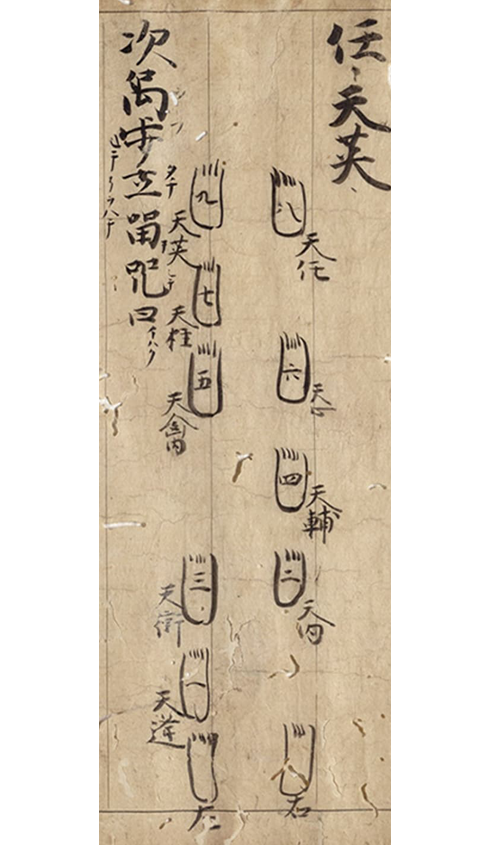 任、天英、
八 天任
六 天心
四 天輔
二 天内
右
九 天英
七 天柱
五 天禽
三 天
一 天逢
左
次禹歩立留咒曰
イハク